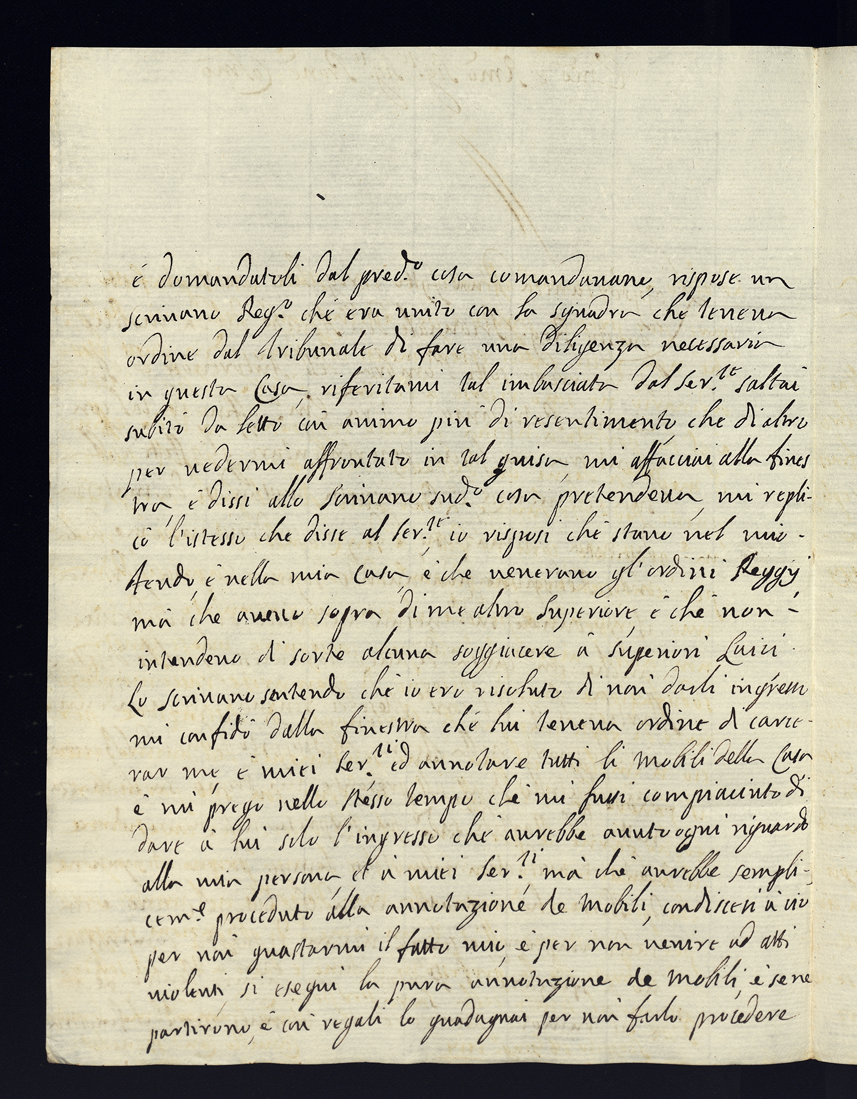 é domandatoli dal pred.º cosa comandavano, rispose un
scrivano Reg.º ché era unito con la squadra ché teneva
ordine dal Tribunale di fare una diligenza necessaria
in questa Casa, riferitami tal imbasciata dal Ser.te saltai
subito da letto con animo piu di resentimento, che di altro
per vedermi affrontato in tal guisa, mi affacciai alla fines
tra, é dissi allo Scrivano sud.º cosa pretendeva, mi repli-
cò l'istesso che disse al Ser.te io risposi ché stavo nel mio -
feudo, é nella mia Casa, é che veneravo gl'ordini Reggij
má che avevo sopra di me altro Superiore é ché non -
intendevo di sorte alcuna soggiacere á Superiori Laici.
Lo scrivano sentendo ché io ero risoluto di non darli ingresso
mi confidó dalla finestra ché lui teneva ordine di carce-
rar me, é miei Ser.ti ed annotare tutti li mobili della Casa
é mi prego nello stesso tempo ché mi fussi compiaciuto di
dare á lui solo l'ingresso ché avrebbe avuto ogni riguardo
alla mia persona, et á miei Ser.ti má ché avrebbe sempli-
cem.e proceduto alla annotazione de mobili, condiscesi á ció
per non guastarmi il fatto mio, é per non venire ad atti
violenti, si eseguì la pura annotazione de mobili, é se ne
partirono, é con regali lo guadagnai per non farlo procedere